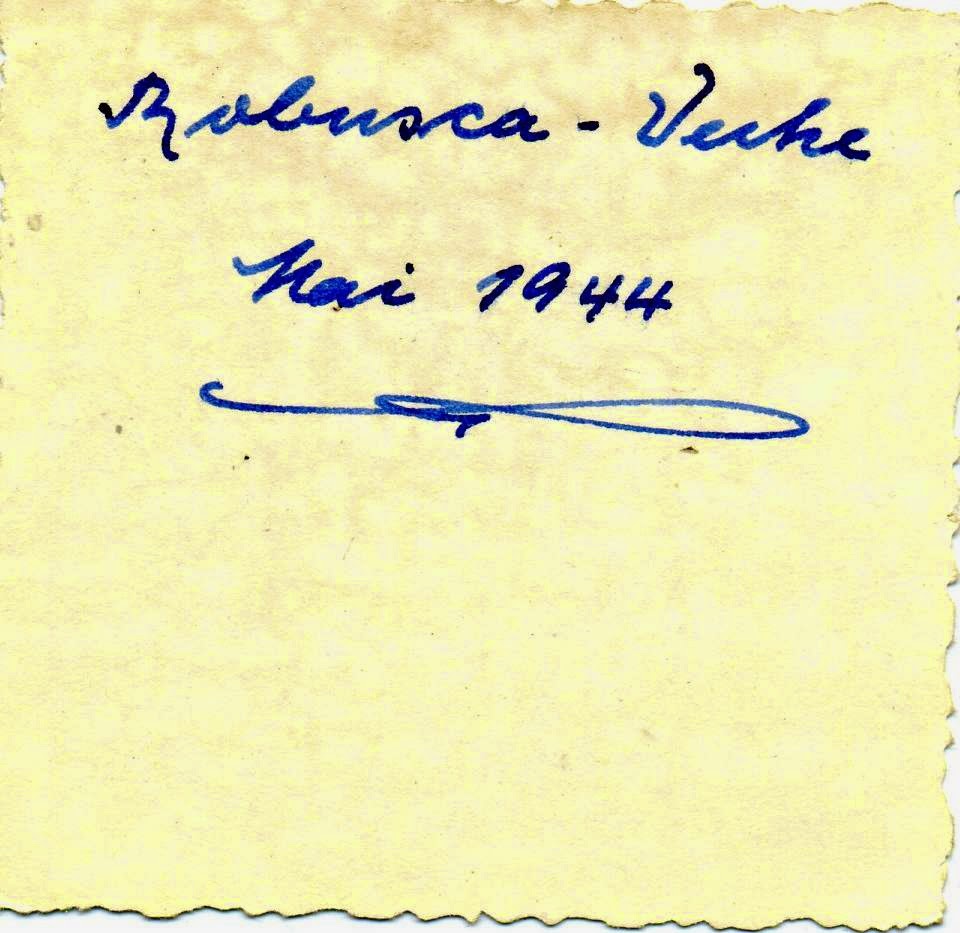 Robusca - Verke
Mai 1944